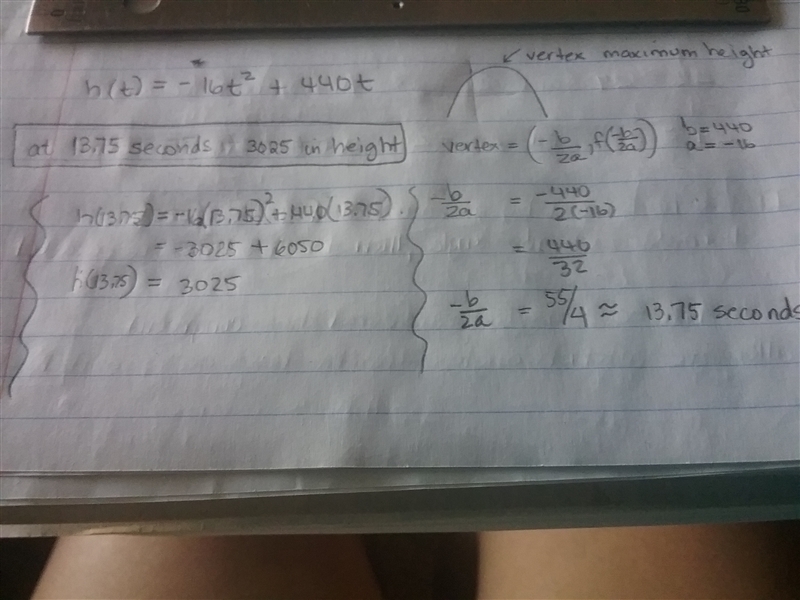 vertex maximum height
h(t) = -16t² + 440t
at 13.75 seconds, 3025 in height
vertex = (-b/2a, f(-b/2a))
b = 440
a = -16
h(13.75) = -16(13.75)² + 440(13.75)
= -3025 + 6050
h(13.75) = 3025
-b/2a = -440/2(-16)
= 440/32
-b/2a = 55/4 ≈ 13.75 seconds